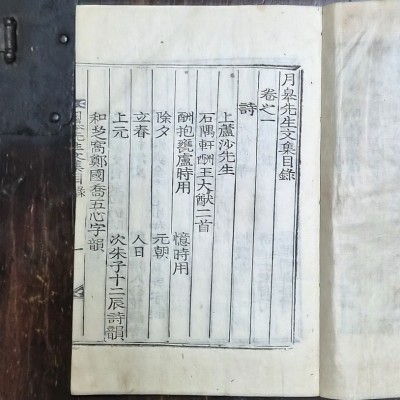 月皐先生文集目錄
卷之一
詩
上蘆沙先生
石隅軒酬王大猷二首
酬抱甕廬時用 憶時用
除夕 元朝
立春 人日
上元 次朱子十二辰詩韻
和芝窩鄭國喬五心字韻